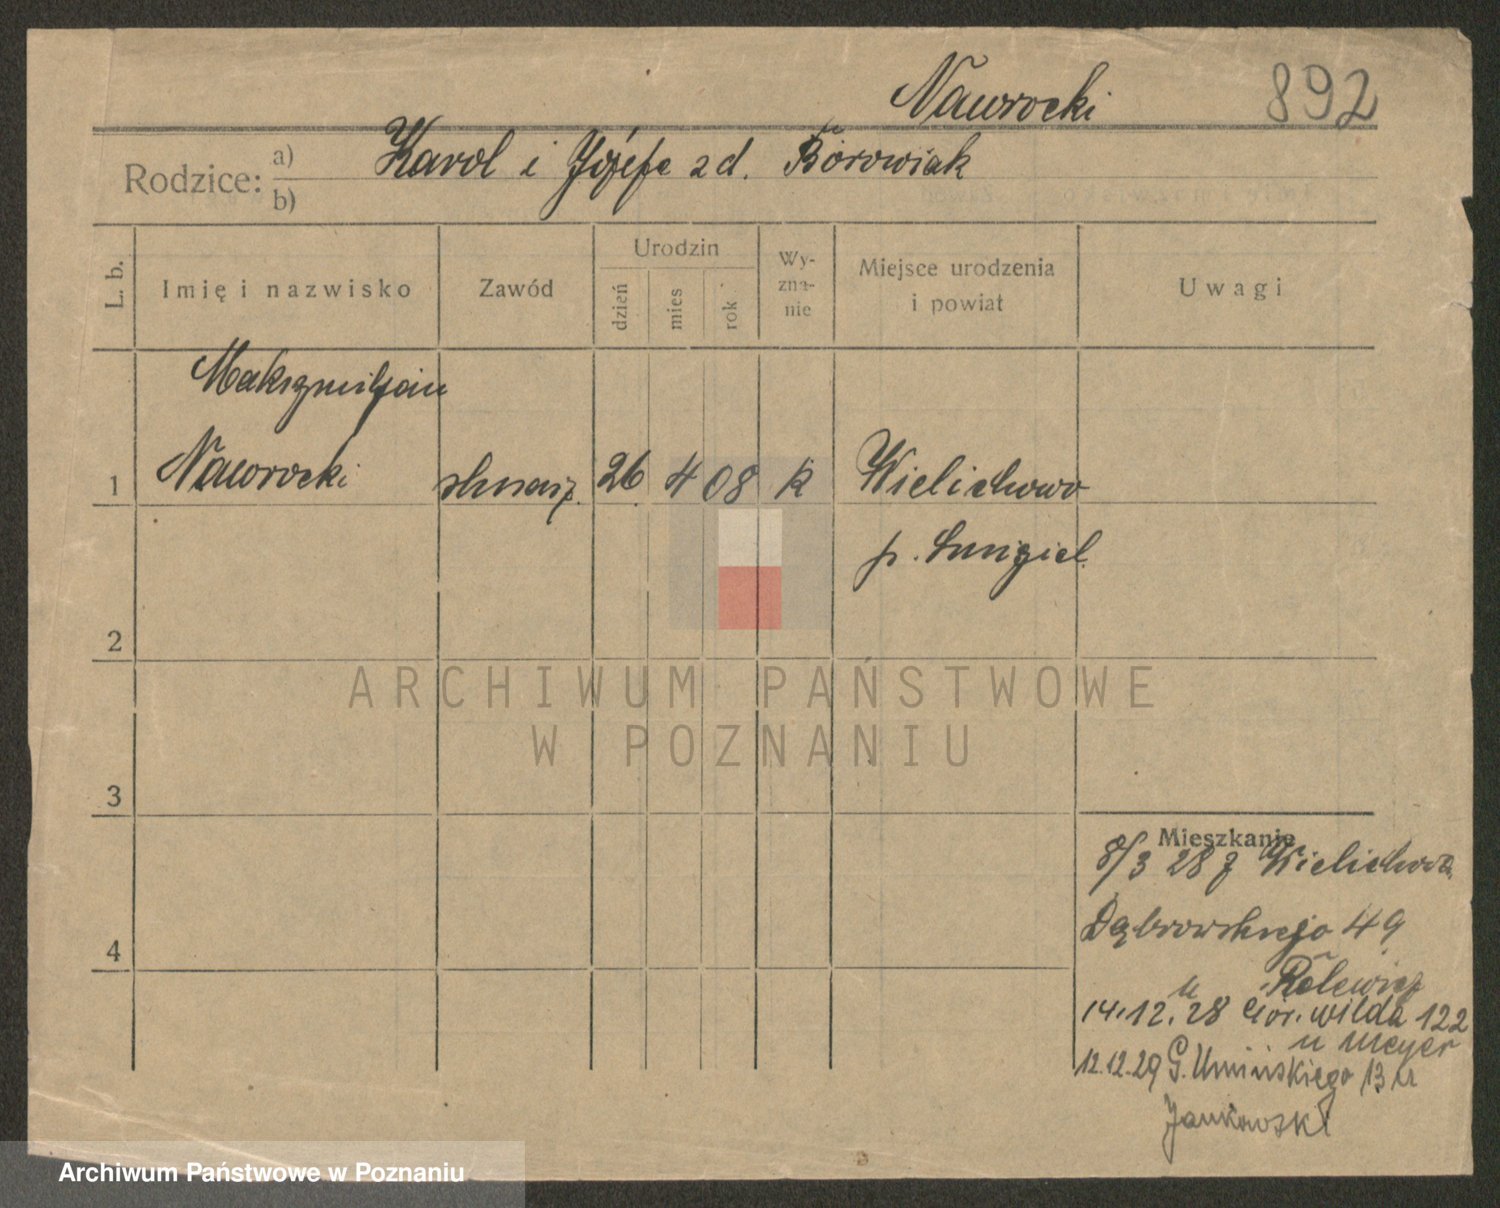 Nawrocki 892
Rodzice: a) b)
Karol i Józefa zd. Borowiak
L. b.
Imię i nazwisko
Zawód
Urodzin
dzień
mies
rok
Wy-
zna-
nie
Miejsce urodzenia
i powiat
Uwagi
Maksymiljan
1 Nawrocki ślusarz 26 4 08 k Wielichowo
p. Śmigiel
2
3
4
Mieszkanie
8/3 28 z Wielichowa
Dąbrowskiego 49
u
14.12.28 Gór. Wilda 122
u Meyer
12.12.29 G. Umińskiego 13 u
Jankowski
ARCHIWUM PAŃSTWOWE
W POZNANIU
Archiwum Państwowe w Poznaniu